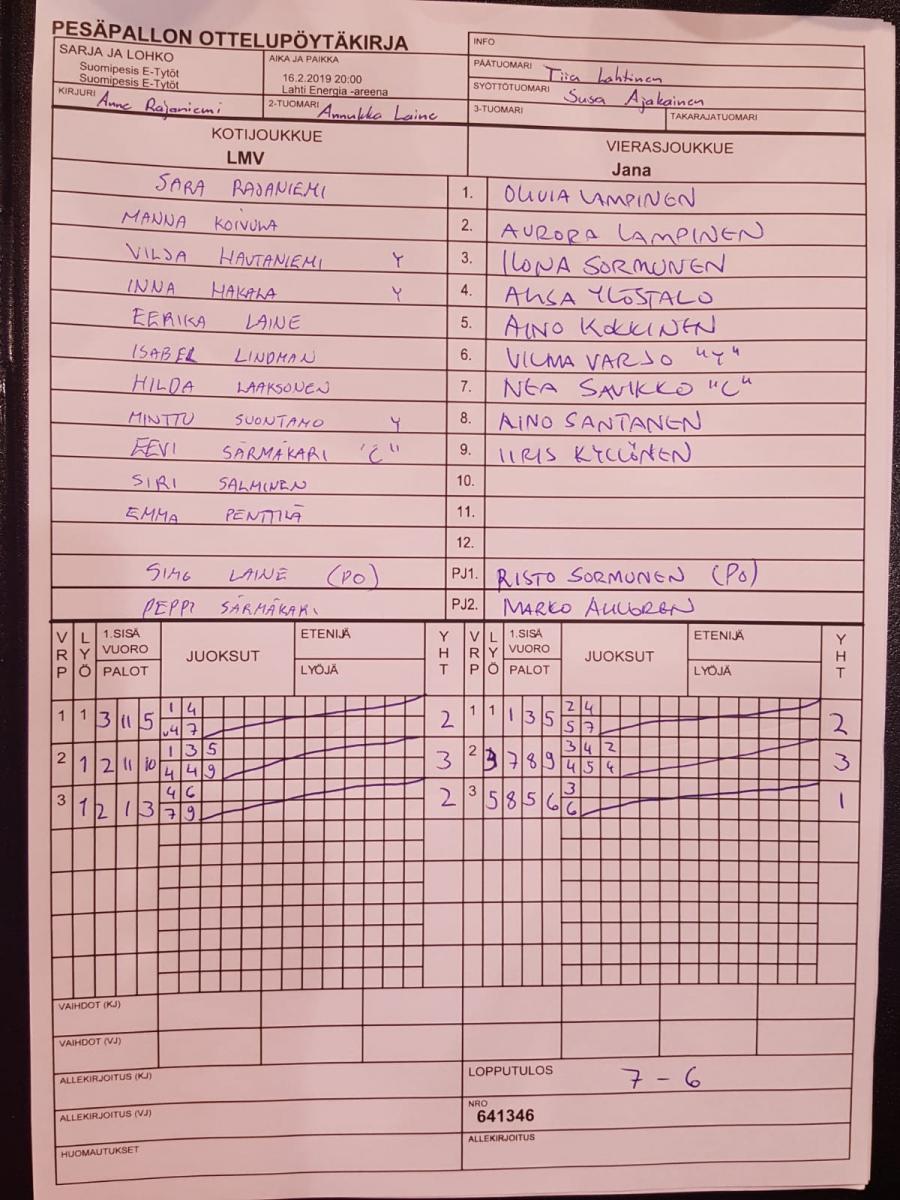 PESÄPALLON OTTELUPÖYTÄKIRJA
SARJA JA LOHKO
Suomipesis E-Tytöt
Suomipesis E-Tytöt
AIKA JA PAIKKA
16.2.2019 20:00
Lahti Energia -areena
INFO
PÄÄTUOMARI Tiia Lahtinen
SYÖTTÖTUOMARI Susa Ajakainen
KIRJURI Anne Rajaniemi
2-TUOMARI Annukka Laine
3-TUOMARI
TAKARAJATUOMARI
KOTIJOUKKUE VIERASJOUKKUE
LMV Jana
SARA RAJANIEMI 1. OLIVIA LAMPINEN
MANNA KOIVULA 2. AURORA LAMPINEN
VILJA HAUTANIEMI Y 3. ILONA SORMUNEN
INNA MAKALA Y 4. AHSA YLOSTALO
EERIKA LAINE 5. AINO KOKKINEN
ISABEL LINDMAN 6. VILMA VARJO "Y"
HILDA LAAKSONEN 7. NEA SAVIKKO "C"
MINTTU SUONTAMO Y 8. AINO SANTANEN
EEVI SÄRMÄKARI "C" 9. IIRIS KYLLÖNEN
SIRI SALMINEN 10.
EMMA PENTTILÄ 11.
12.
SIMO LAINE (PO) PJ1. RISTO SORMUNEN (PO)
PEPPI SÄRMÄKARI PJ2. MARKO AHLGREN
VRP LYÖ 1.SISÄ VUORO PALOT JUOKSUT ETENIJÄ LYÖJÄ YHT VRP LYÖ 1.SISÄ VUORO PALOT JUOKSUT ETENIJÄ LYÖJÄ YHT
1 1 3 11 5 1 4 2 1 1 1 3 5 2 4 2
4 7 5 7
2 1 2 11 10 1 3 5 3 2 3 7 8 9 3 4 2 3
4 4 9 4 5 4
3 1 2 1 3 4 6 2 3 5 8 5 6 3 1
7 9 6
VAIHDOT (KJ)
VAIHDOT (VJ)
ALLEKIRJOITUS (KJ)
LOPPUTULOS 7 - 6
ALLEKIRJOITUS (VJ)
NRO
641346
HUOMAUTUKSET
ALLEKIRJOITUS